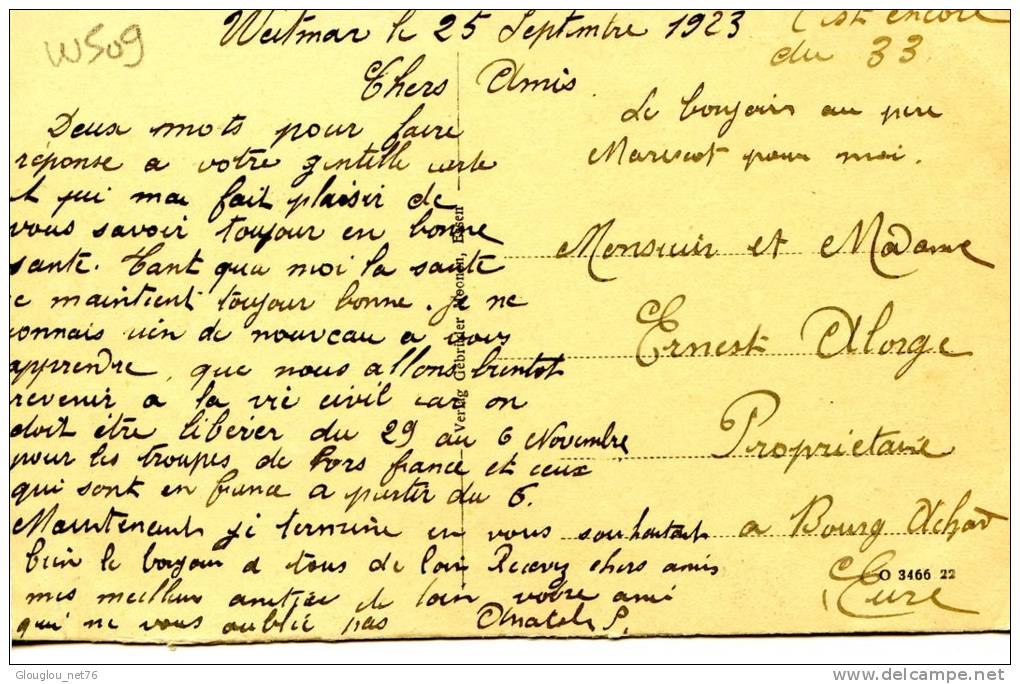 W509
Weitmar le 25 Septembre 1923
C'est encore
du 33
Chers Amis
Deux mots pour faire
réponse a votre gentille carte
et qui ma fait plaisir de
vous savoir toujour en bonne
santé. Tant qua moi la santé
se maintient toujour bonne. je ne
connais rien de nouveau a vous
apprendre, que nous allons bientot
revenir a la vie civil car on
doit être libérer du 29 au 6 Novembre
pour les troupes de hors france et ceux
qui sont en france a partir du 6.
Maintenant je termine en vous souhaitant
bien le bonjour a tous de loin Recevez chers amis
mes meilleur amitiée de loin votre ami
qui ne vous oublie pas Anatole P.
Le bonjour au père
Marescot pour moi.
Monsieur et Madame
Ernest Alorge
Propriétaire
a Bourg Achard
Eure
Verlag Gebrüder Koonen, Essen
O 3466 22
Glouglou_net76
delcampe.net